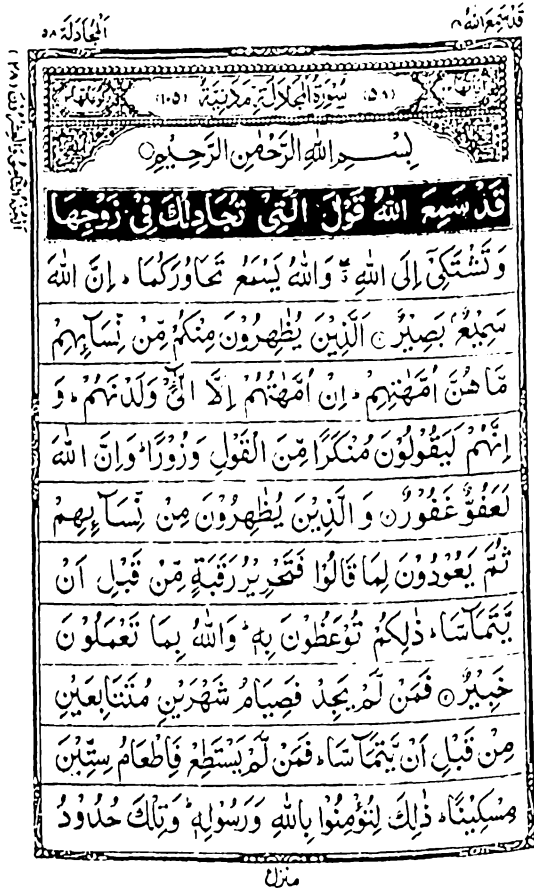 قَدْ سَمِعَ اللهُ ٢٨
اَلْمُجَادَلَة ٥٨
(٥٨) سُوْرَةُ الْمُجَادَلَةِ مَدَنِيَّةٌ (١٠٥)
بِسْــمِ اللهِ الرَّحْمٰنِ الرَّحِيْمِ
قَدْ سَمِعَ اللهُ قَوْلَ الَّتِيْ تُجَادِلُكَ فِيْ زَوْجِهَا
وَتَشْتَكِيْٓ اِلَى اللهِ ۖ وَاللهُ يَسْمَعُ تَحَاوُرَكُمَا ؕ اِنَّ اللهَ
سَمِيْعٌۢ بَصِيْرٌ ۝ اَلَّذِيْنَ يُظٰهِرُوْنَ مِنْكُمْ مِّنْ نِّسَآئِهِمْ
مَّا هُنَّ اُمَّهٰتِهِمْ ؕ اِنْ اُمَّهٰتُهُمْ اِلَّا الّٰٓـِٔيْ وَلَدْنَهُمْ ؕ وَ
اِنَّهُمْ لَيَقُوْلُوْنَ مُنْكَرًا مِّنَ الْقَوْلِ وَزُوْرًا ؕ وَاِنَّ اللهَ
لَعَفُوٌّ غَفُوْرٌ ۝ وَالَّذِيْنَ يُظٰهِرُوْنَ مِنْ نِّسَآئِهِمْ
ثُمَّ يَعُوْدُوْنَ لِمَا قَالُوْا فَتَحْرِيْرُ رَقَبَةٍ مِّنْ قَبْلِ اَنْ
يَّتَمَآسَّا ؕ ذٰلِكُمْ تُوْعَظُوْنَ بِهٖ ؕ وَاللهُ بِمَا تَعْمَلُوْنَ
خَبِيْرٌ ۝ فَمَنْ لَّمْ يَجِدْ فَصِيَامُ شَهْرَيْنِ مُتَتَابِعَيْنِ
مِنْ قَبْلِ اَنْ يَّتَمَآسَّا ۚ فَمَنْ لَّمْ يَسْتَطِعْ فَاِطْعَامُ سِتِّيْنَ
مِسْكِيْنًا ؕ ذٰلِكَ لِتُؤْمِنُوْا بِاللهِ وَرَسُوْلِهٖ ؕ وَتِلْكَ حُدُوْدُ
منزل